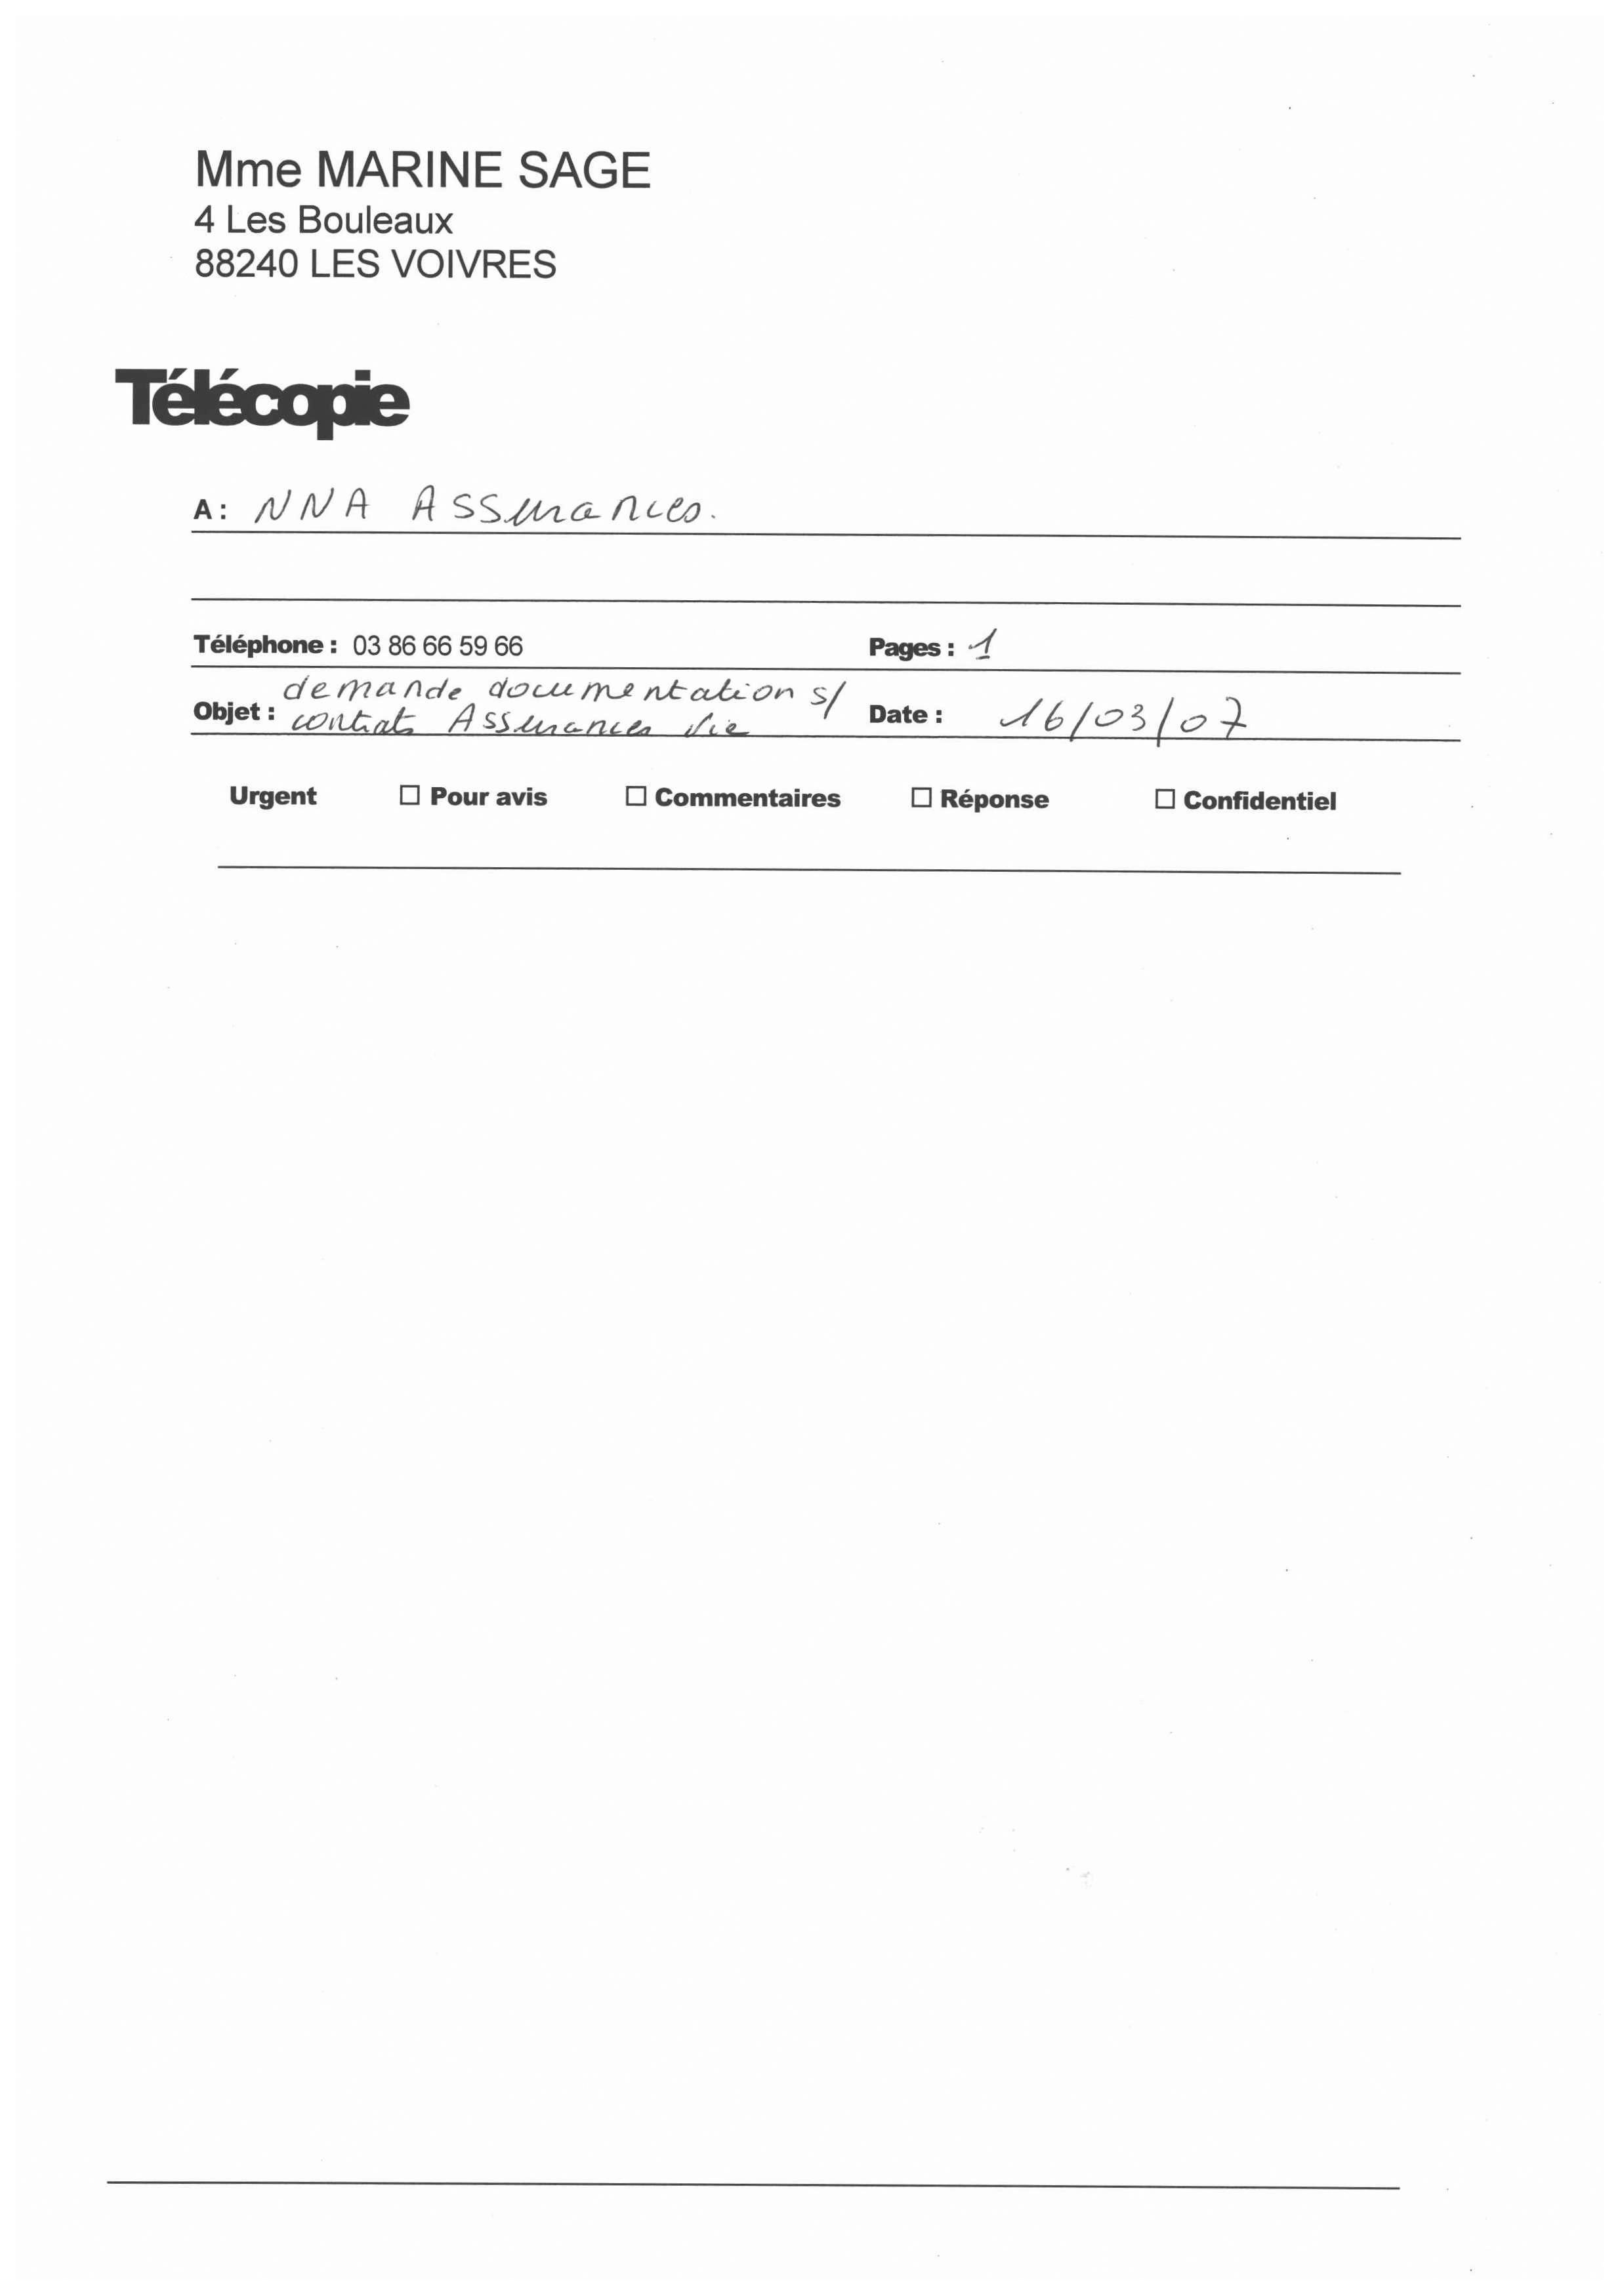 Mme MARINE SAGE
4 Les Bouleaux
88240 LES VOIVRES
Télécopie
A : NNA Assurances.
Téléphone : 03 86 66 59 66 Pages : 1
Objet : demande documentation s/
contrats Assurances Vie
Date : 16/03/07
Urgent ☐ Pour avis ☐ Commentaires ☐ Réponse ☐ Confidentiel